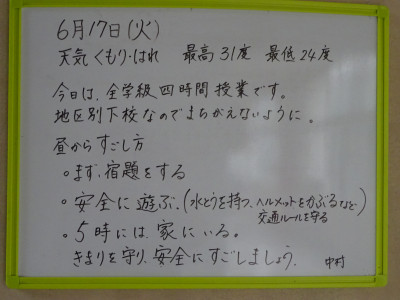 6月17日(火)
天気 くもり・はれ 最高31度 最低24度
今日は、全学級四時間授業です。
地区別下校なのでまちがえないように。
昼からすごし方
。まず、宿題をする
。安全に遊ぶ。(水とうを持つ、ヘルメットをかぶるなど)
交通ルールを守る
。5時には、家にいる。
きまりを守り、安全にすごしましょう。
中村